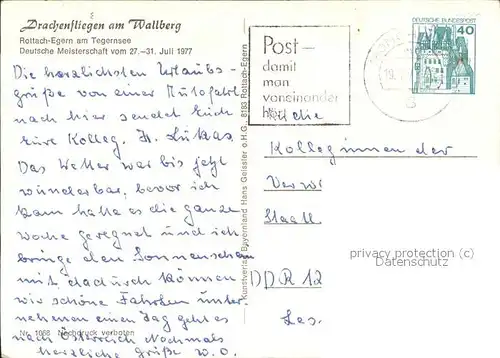 Drachenfliegen am Wallberg
Rottach-Egern am Tegernsee
Deutsche Meisterschaft vom 27.–31. Juli 1977
Die herzlichsten Urlaubs-
grüße von einer Autofahrt
nach hier sendet Euch
Eure Kolleg. H. Lukas.
Das Wetter war bis jetzt
wunderbar, bevor ich
kam hatte es die ganze
Woche geregnet und ich
bringe den Sonnenschein
mit, dadurch können
wir schöne Fahrten unter-
nehmen einen Tag geht es
nach Österreich Nochmals
herzliche Grüße w. o.
Nr. 1068 Nachdruck verboten
Kunstverlag Bayernland Hans Geissler o.H.G., 8183 Rottach-Egern
Post –
damit
man
voneinander
hört
DEUTSCHE BUNDESPOST
40
8
Kolleginnen der
Staatl
DDR 12
privacy protection
Datenschutz